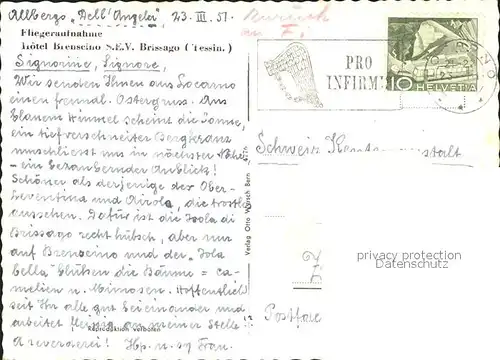 Albergo "Dell' Angelo", 23. III. 51.
Zurück
an
Fliegeraufnahme
Hôtel Brenscino S.E.V. Brissago (Tessin.)
Signorine, Signore,
Wir senden Ihnen aus Locarno
einen freundl. Ostergruss. Am
blauen Himmel scheint die Sonne,
ein tief verschneiter Bergkranz
umschliesst uns in nächster Nähe
- ein bezaubernder Anblick!
Schöner als derjenige der Ober-
leventina und Airolo, die trostlos
aussehen. Dafür ist die Isola di
Brissago recht hübsch, aber nur
auf Brenscino und der "Isola
bella" blühen die Bäume = Ca-
melien u. Mimosen. Hoffentlich
seid Ihr alle gut bei einander und
arbeitet fleissig an meiner Stelle
A rivederci! Hp. u. Frau.
Reproduktion verboten
Verlag Otto Wyrsch Bern
PRO
INFIRMIS
10 HELVETIA
Schweiz
Postfach
privacy protection
Datenschutz